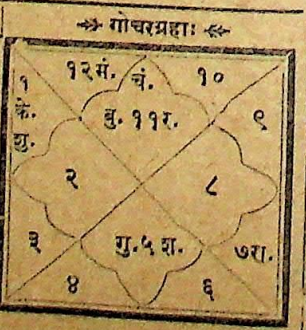 गोचरग्रहाः
१२मं. चं. १०
१ के. शु. बु. ११र. ९
२ ८
३ गु.५ श. ७रा.
४ ६